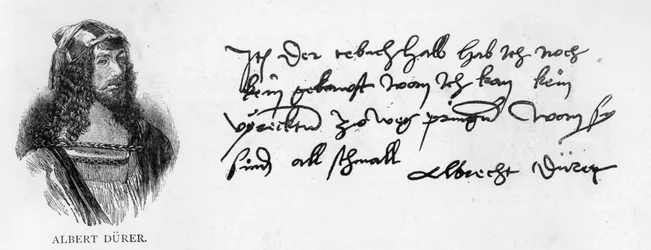 ALBERT DÜRER.
der tebich halb hab ich noch
kein gekawft wan ich kan kein
vyreckten zw weg pringen wan sy
sind all schmall
Albrecht Dürer